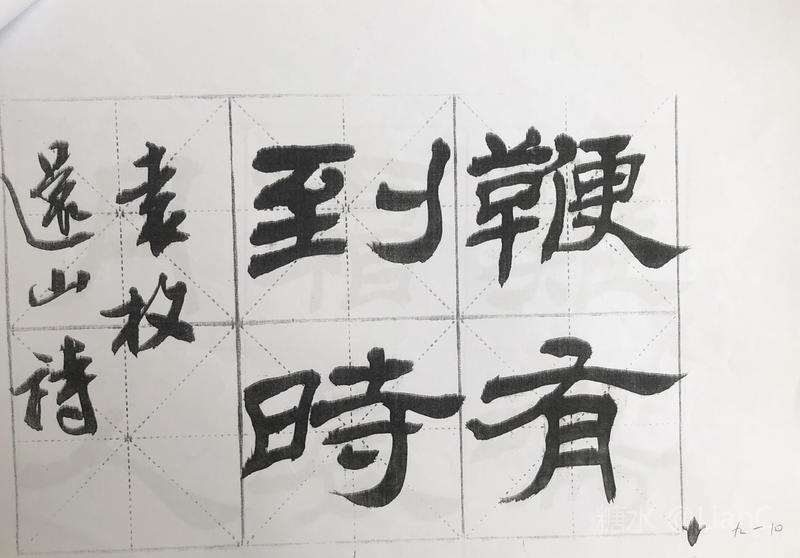 鞭有
到時
袁枚
還山詩
九一10
糖水 @LianC